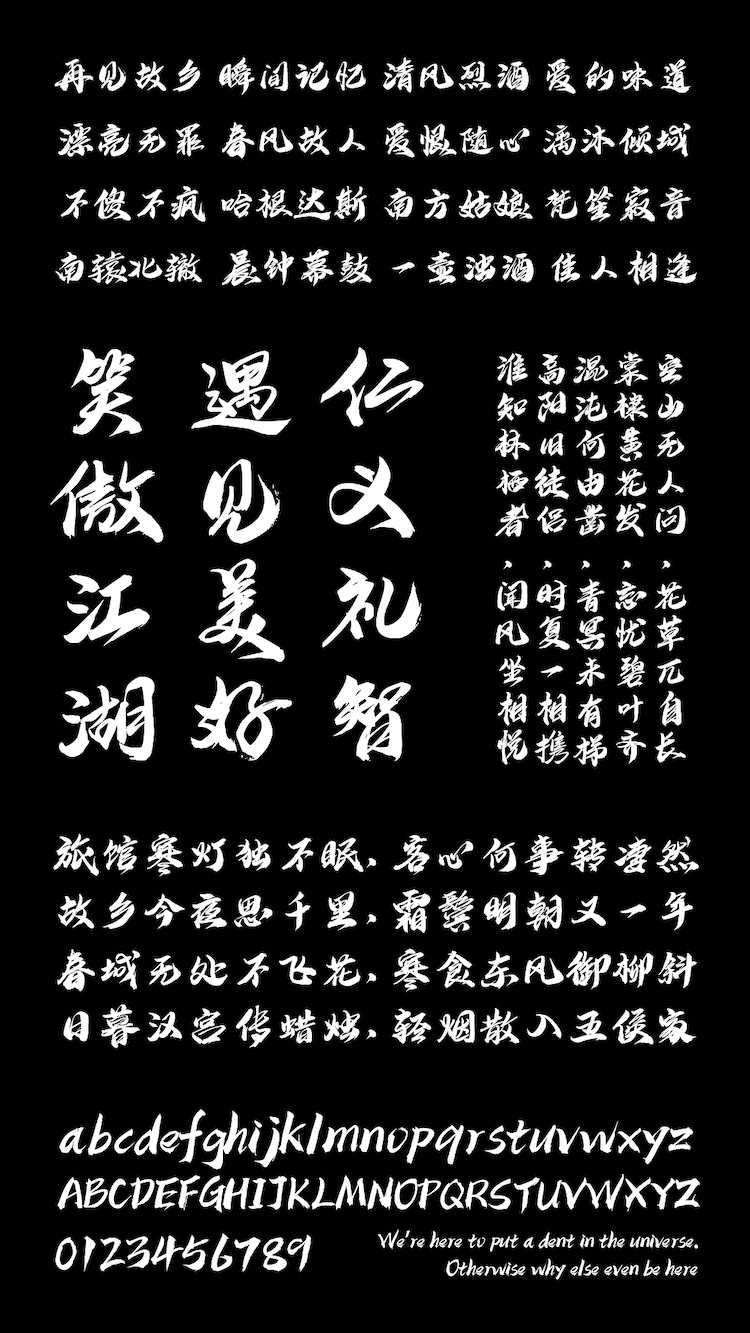 再见故乡 瞬间记忆 清风烈酒 爱的味道
漂亮无罪 春风故人 爱恨随心 沐倾城
不傻不疯 哈根达斯 南方姑娘 梵笙寂音
南辕北辙 晨钟幕鼓 一壶浊酒 佳人相逢
笑傲江湖
遇见美好
仁义礼智
空山无人问，花草兀自长
棠棣黄花发，忘忧碧叶齐
混沌何由凿，青冥未有梯
高阳旧徒侣，时复一相携
谁知林栖者，闻风坐相悦
旅馆寒灯独不眠，客心何事转凄然
故乡今夜思千里，霜鬓明朝又一年
春城无处不飞花，寒食东风御柳斜
日暮汉宫传蜡烛，轻烟散入五侯家
abcdefghijklmnopqrstuvwxyz
ABCDEFGHIJKLMNOPQRSTUVWXYZ
0123456789
We're here to put a dent in the universe.
Otherwise why else even be here